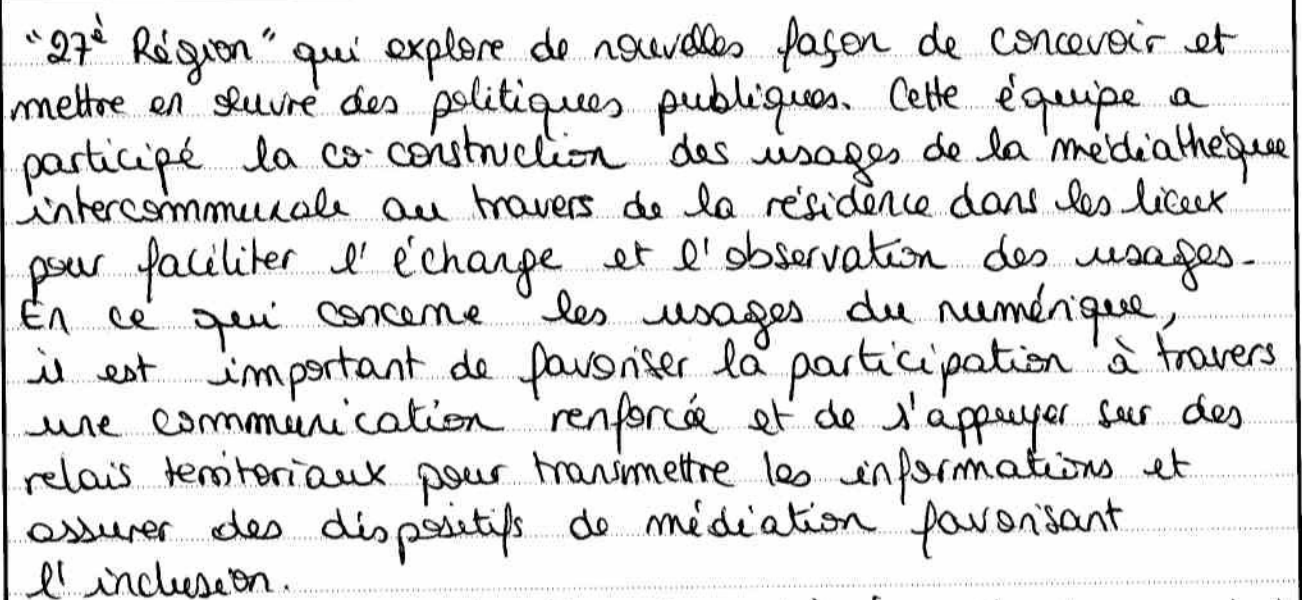 "27è Région" qui explore de nouvelles façon de concevoir et
mettre en œuvre des politiques publiques. Cette équipe a
participé la co-construction des usages de la médiathèque
intercommunale au travers de la résidence dans les lieux
pour faciliter l'échange et l'observation des usages.
En ce qui concerne les usages du numérique,
il est important de favoriser la participation à travers
une communication renforcée et de s'appuyer sur des
relais territoriaux pour transmettre les informations et
assurer des dispositifs de médiation favorisant
l'inclusion.